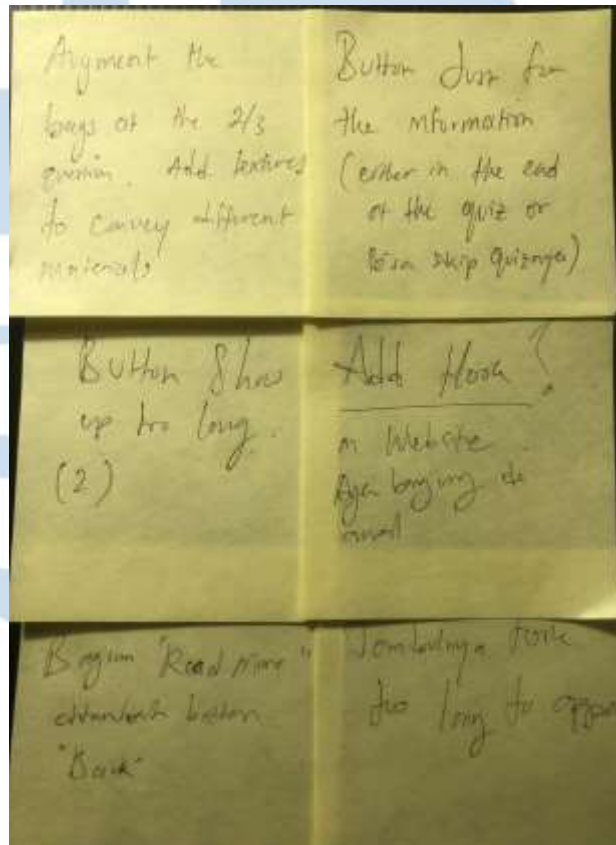 Augment the
bags at the 2/3
question. Add textures
to convey different
materials
Button Just for
the information
(either in the end
of the quiz or
bisa skip quiznya)
Button Show
up too long.
(2)
Add Hook?
in Website
Agar
email
Bagian "Read more"
button
"Back"
Tombolnya took
too long to appear